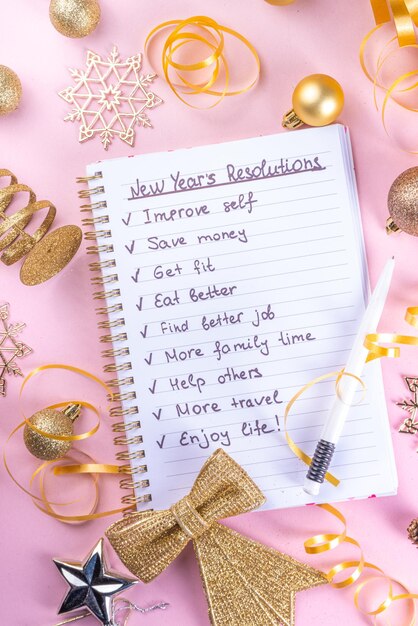 New Year's Resolutions
✓ Improve self
✓ Save money
✓ Get fit
✓ Eat better
✓ Find better job
✓ More family time
✓ Help others
✓ More travel
✓ Enjoy life!